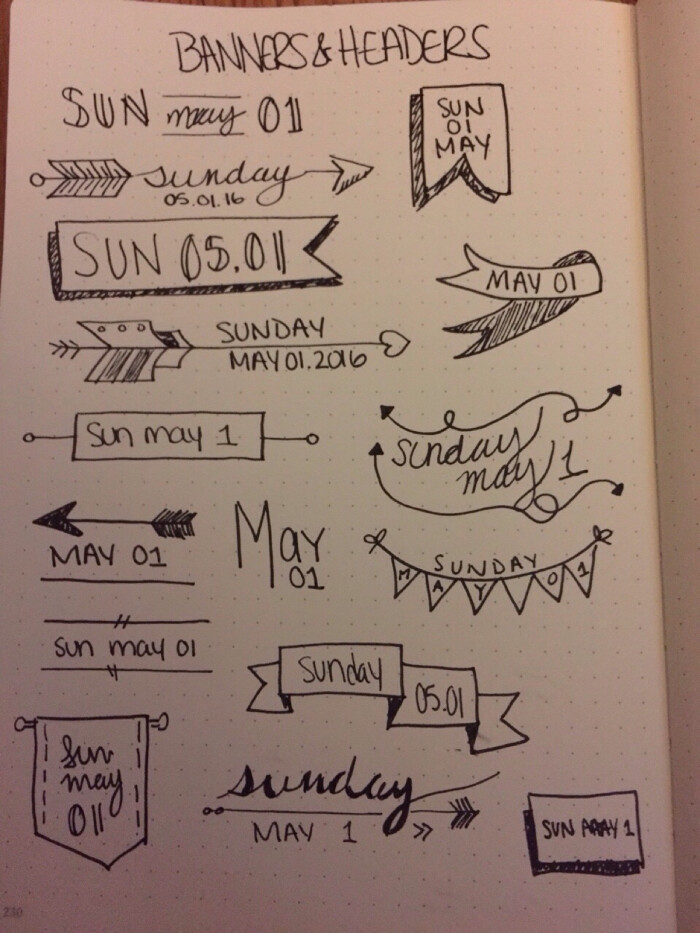 BANNERS & HEADERS
SUN may 01
SUN
01
MAY
sunday
05.01.16
SUN 05.01
MAY 01
SUNDAY
MAY 01.2016
Sun may 1
sunday
may 1
MAY 01
May
01
SUNDAY
MAY 01
Sun may 01
Sunday
05.01
Sun
may
01
sunday
MAY 1
SUN MAY 1
230